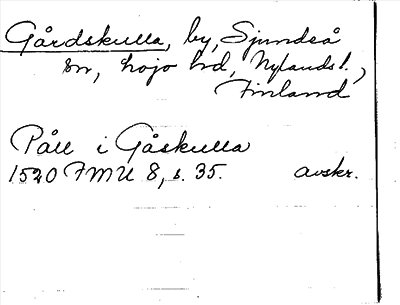 Gårdskulla, by, Sjundeå
sn, Lojo hd, Nylands l.,
Finland
Påll i Gåskulla
1520 FMU 8, s. 35. avskr.